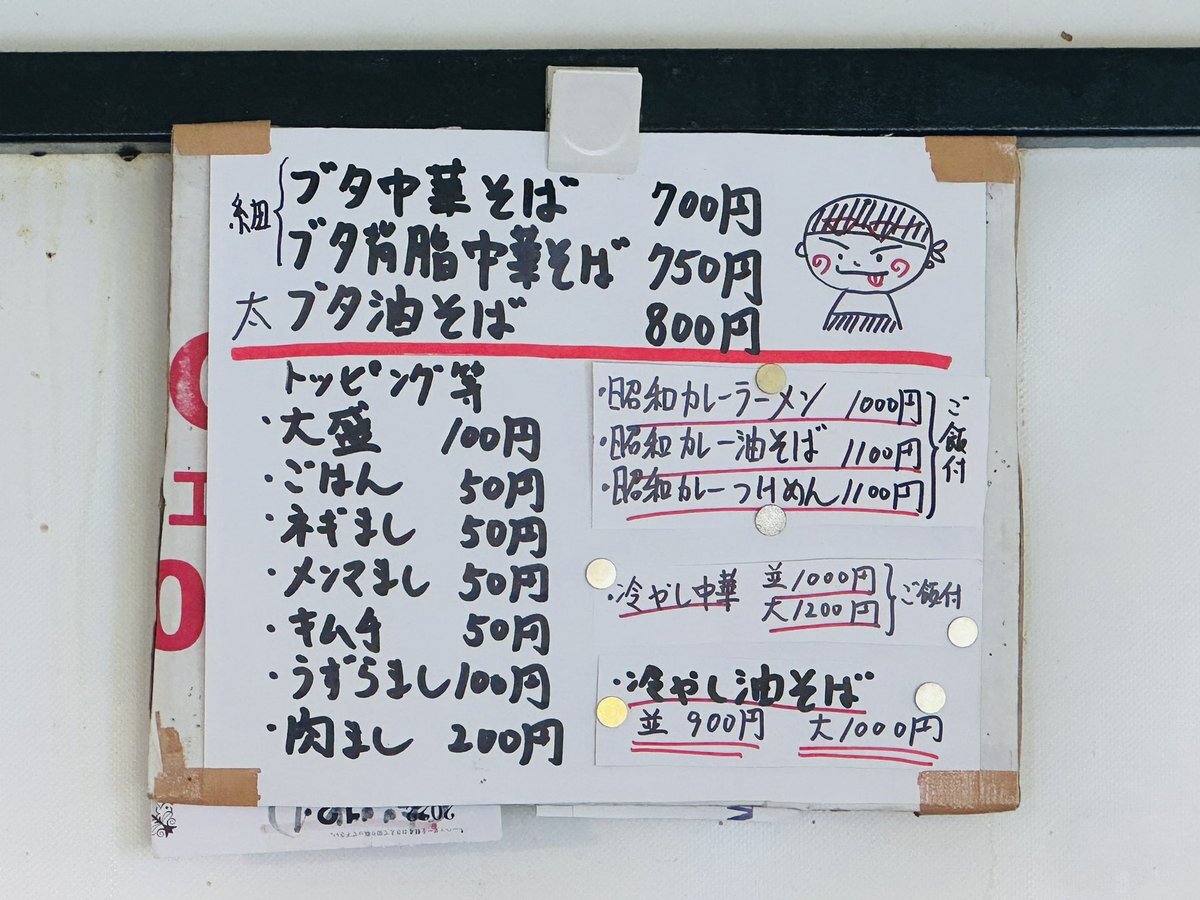 細 ブタ中華そば 700円
ブタ背脂中華そば 750円
太 ブタ油そば 800円
トッピング等
・大盛 100円
・ごはん 50円
・ネギまし 50円
・メンママまし 50円
・キムチ 50円
・うずらまし 100円
・肉まし 200円
・昭和カレーラーメン 1000円
・昭和カレー油そば 1100円
・昭和カレーつけめん 1100円
ご飯付
・冷やし中華 並1000円
大1200円
ご飯付
・冷やし油そば
並 900円 大1000円
2022